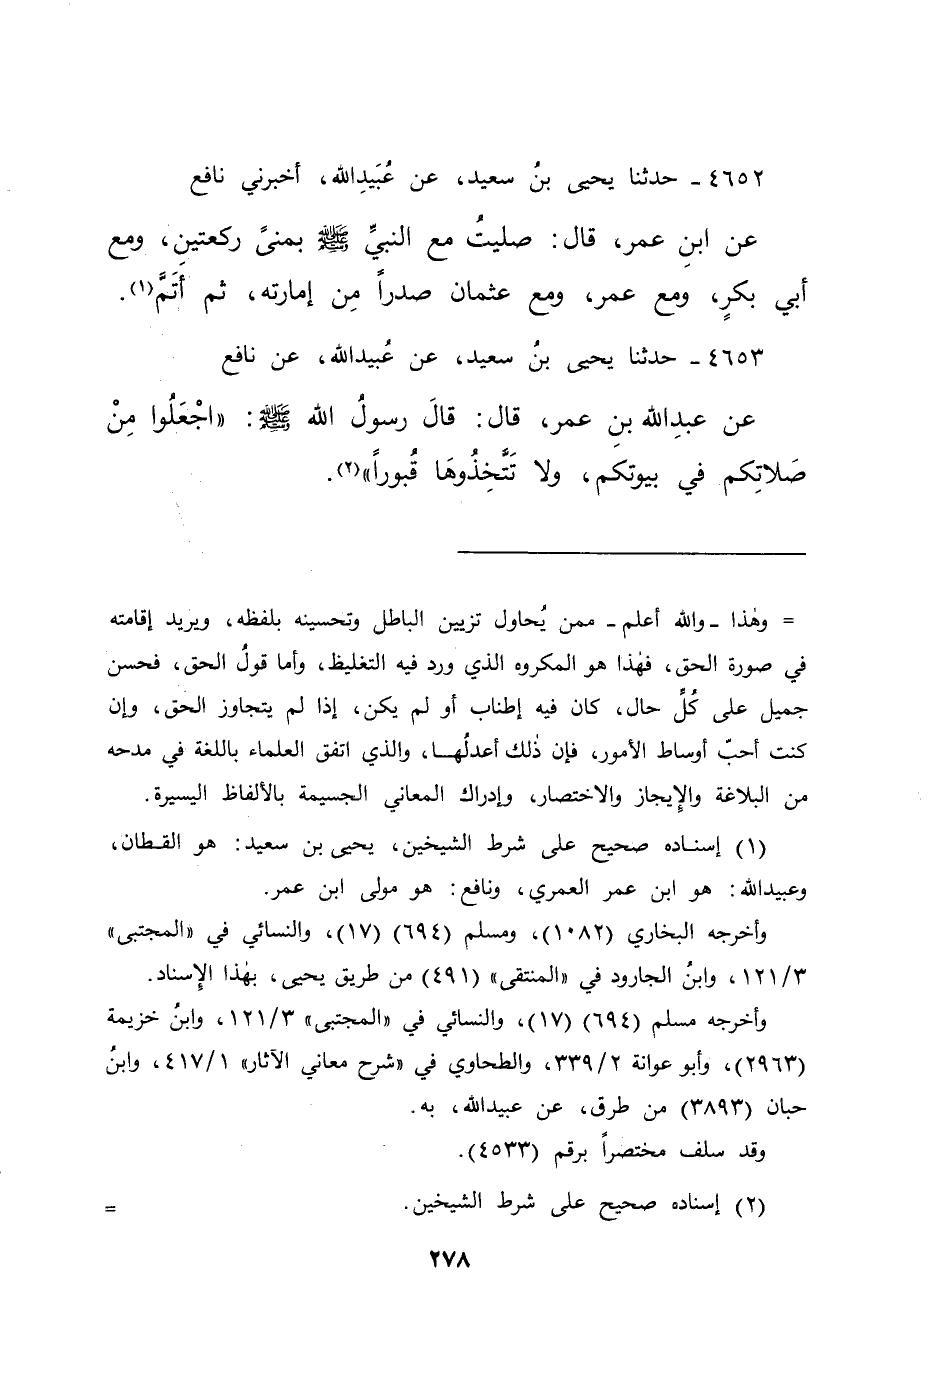 ٤٦٥٢ ـ حدثنا يحيى بنُ سعيد، عن عُبَيدِالله، أخبرني نافع
عن ابنِ عمر، قال: صليتُ مع النبيِّ ﷺ بمنىً ركعتينِ، ومع
أبي بكرٍ، ومع عمر، ومع عثمان صدراً مِن إمارته، ثم أَتَمَّ(١).
٤٦٥٣ ـ حدثنا يحيى بنُ سعيد، عن عُبيدالله، عن نافع
عن عبدِالله بنِ عمر، قال: قالَ رسولُ الله ﷺ: «اجْعَلُوا مِنْ
صَلاتِكم في بيوتكم، ولا تَتَّخِذُوهَا قُبوراً»(٢).
= وهٰذا ـ والله أعلم ـ ممن يُحاول تزيين الباطل وتحسينه بلفظه، ويريد إقامته
في صورة الحق، فهٰذا هو المكروه الذي ورد فيه التغليظ، وأما قولُ الحق، فحسن
جميل على كُلِّ حال، كان فيه إطناب أو لم يكن، إذا لم يتجاوز الحق، وإن
كنت أحبّ أوساط الأمور، فإن ذٰلك أعدلُهـا، والذي اتفق العلماء باللغة في مدحه
من البلاغة والإيجاز والاختصار، وإدراك المعاني الجسيمة بالألفاظ اليسيرة.
(١) إسناده صحيح على شرط الشيخين، يحيى بن سعيد: هو القطان،
وعبيدالله: هو ابن عمر العمري، ونافع: هو مولى ابن عمر.
وأخرجه البخاري (١٠٨٢)، ومسلم (٦٩٤) (١٧)، والنسائي في «المجتبى»
١٢١/٣، وابنُ الجارود في «المنتقى» (٤٩١) من طريق يحيى، بهٰذا الإسناد.
وأخرجه مسلم (٦٩٤) (١٧)، والنسائي في «المجتبى» ١٢١/٣، وابنُ خزيمة
(٢٩٦٣)، وأبو عوانة ٣٣٩/٢، والطحاوي في «شرح معاني الآثار» ٤١٧/١، وابنُ
حبان (٣٨٩٣) من طرق، عن عبيدالله، به.
وقد سلف مختصراً برقم (٤٥٣٣).
(٢) إسناده صحيح على شرط الشيخين. =
٢٧٨